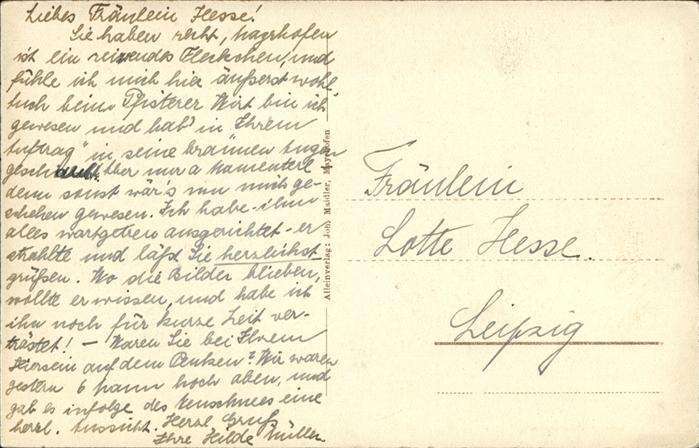 Liebes Fräulein Hesse!
Sie haben recht, Mayrhofen
ist ein reizendes Fleckchen, und
fühle ich mich hier äußerst wohl
Auch beim Pfisterer Wirt bin ich
gewesen und hab' in Ihrem
Auftrag" in seine braunen Augen
geschaut. Aber nur a Momenterl
denn sonst wär's um mich ge-
schehen gewesen. Ich habe ihm
alles wortgetreu ausgerichtet - er
strahlte und läßt Sie herzlichst
grüßen. Wo die Bilder blieben,
wollte er wissen, und habe ich
ihn noch für kurze Zeit ver-
tröstet! - Waren Sie bei Ihrem
Hiersein auf dem Penken? Wir waren
gestern 6 Mann hoch oben, und
gab es infolge des Neuschnees eine
herrl. Aussicht. Herzl. Gruß
Ihre Hilde Müller
Alleinverlag: Joh. Maidler, Mayrhofen
Fräulein
Lotte Hesse.
Leipzig